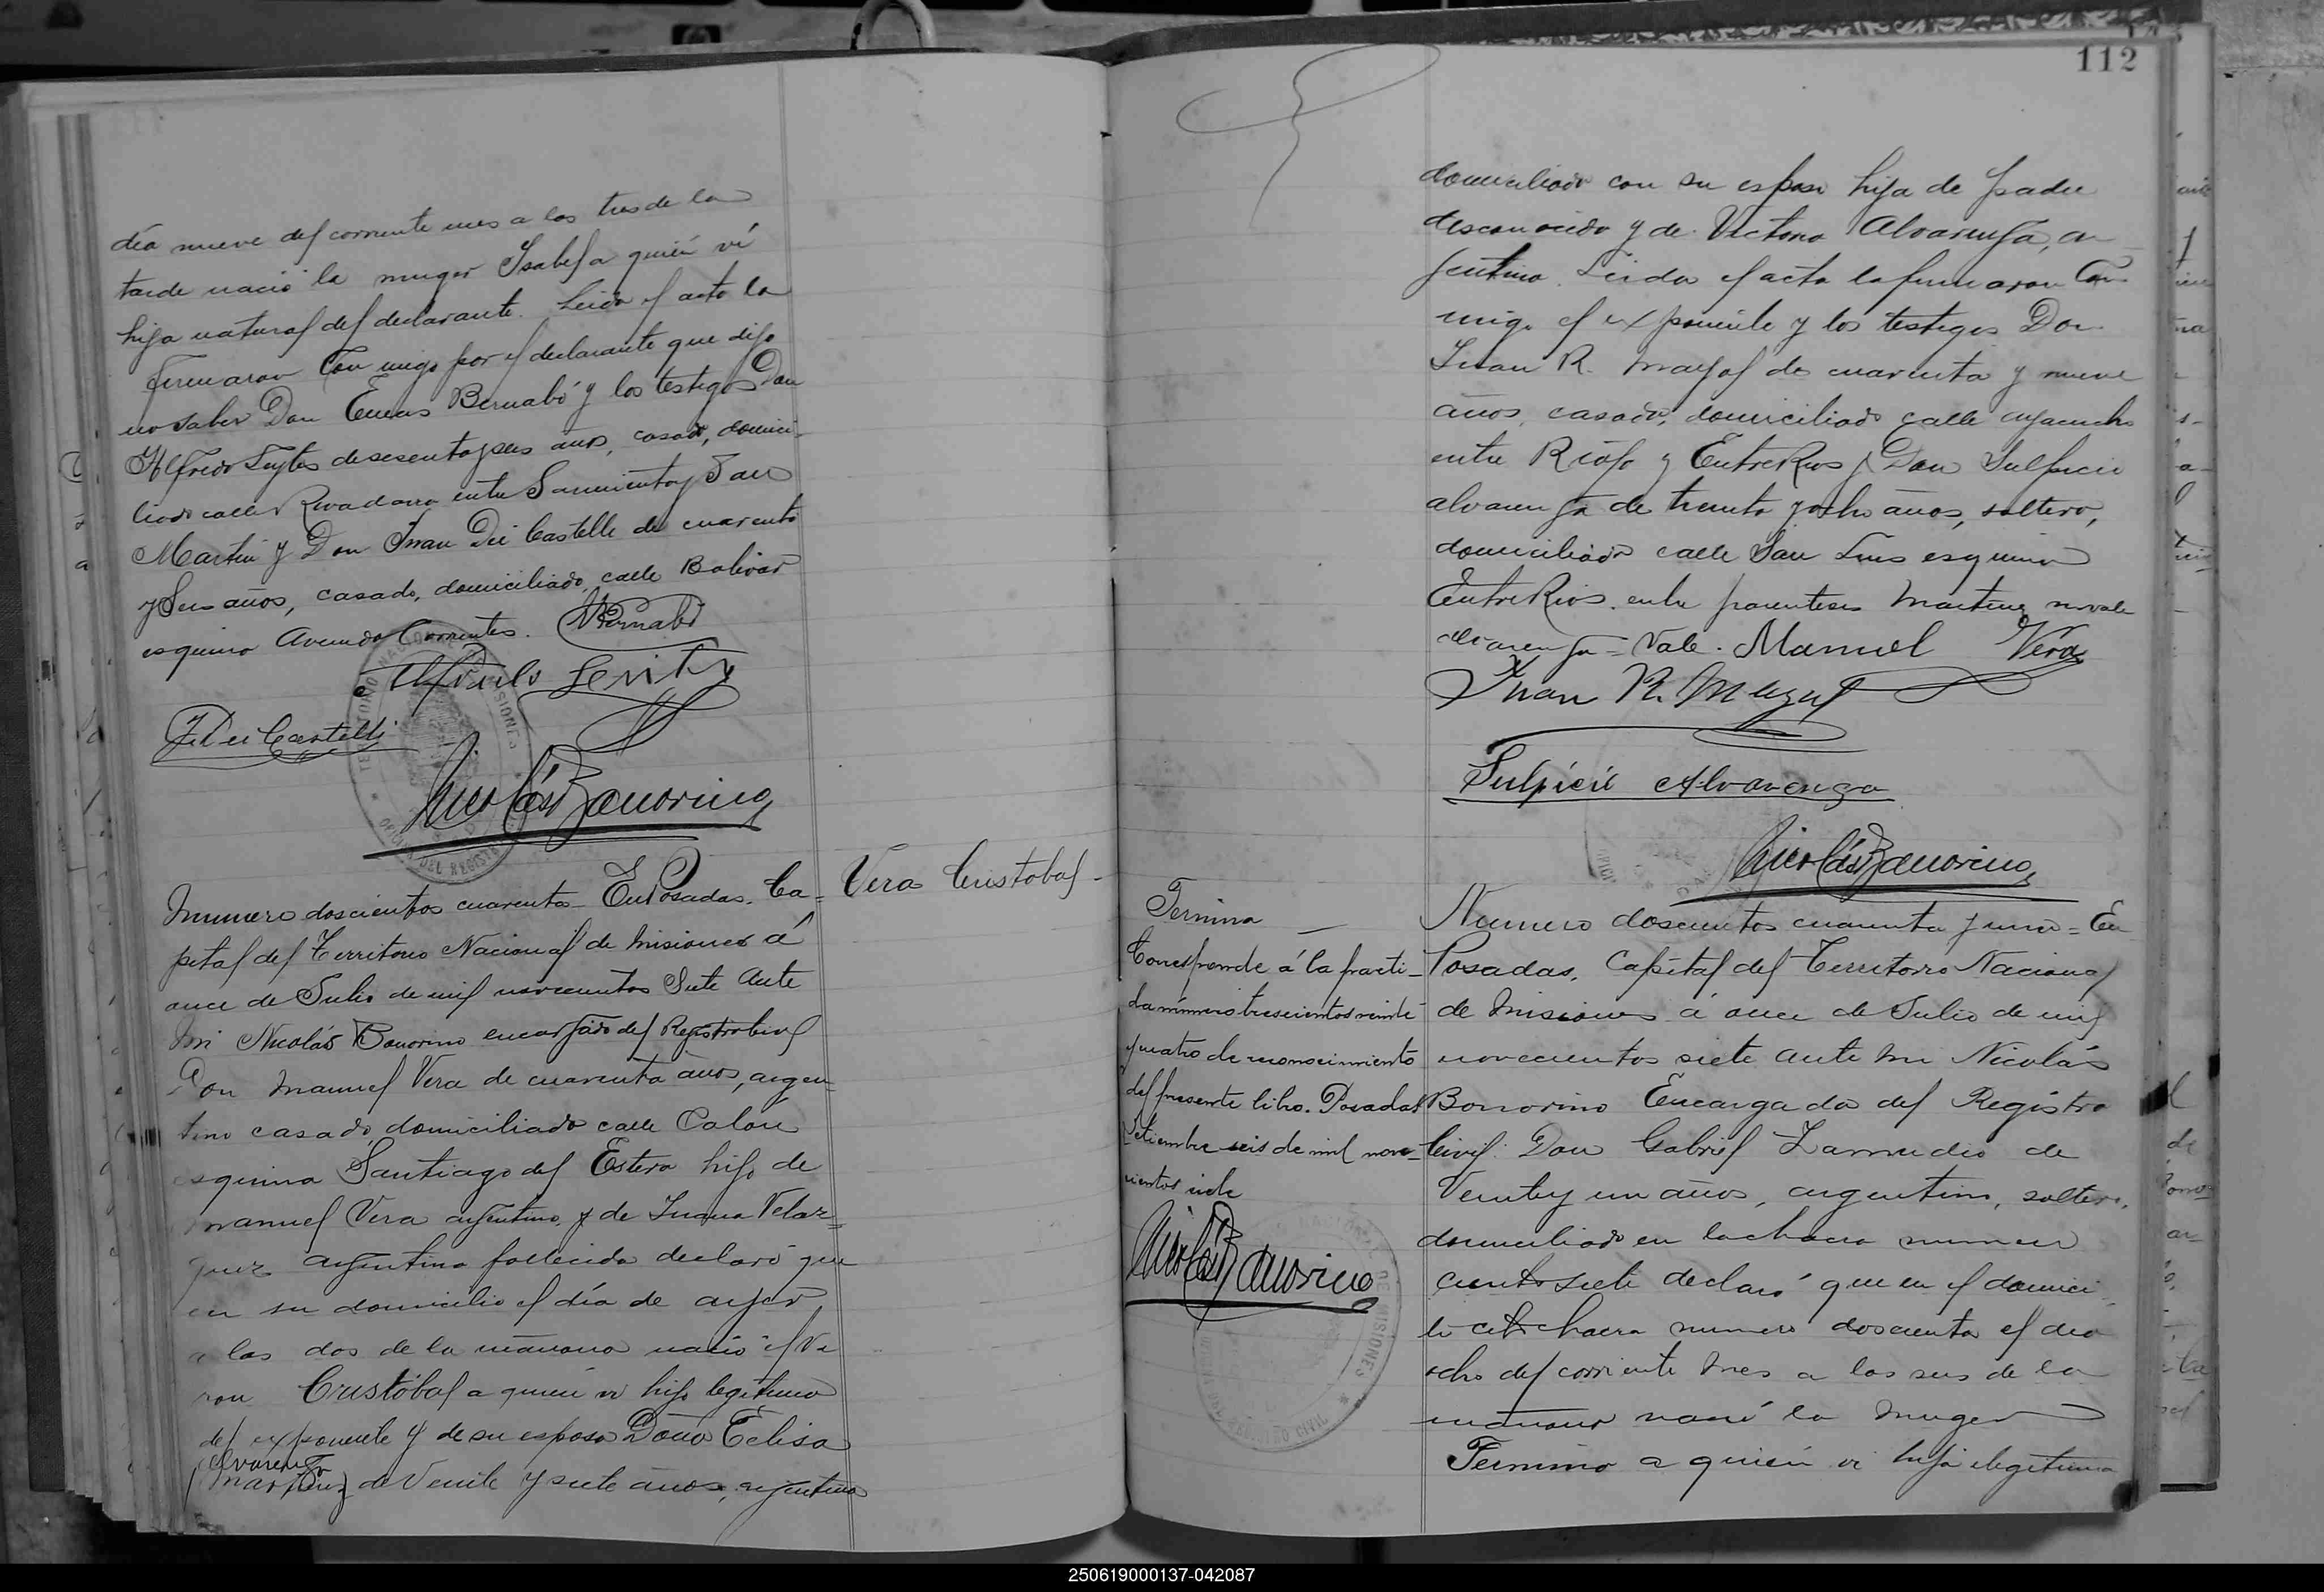 día nueve del corriente mes a las tres de la
tarde nació la muger Isabela quién ví
hija natural del declarante. Leida el acta la
firmaron Conmigo por el declarante que dijo
no saber Don Eneas Bernabó y los testigos Don
Alfredo de sesenta y seis años, casado, domici-
liado calle Rivadavia entre Sarmiento y San
Martin y Don Juan Dei Castelle de cuarenta
y Seis años, casado, domiciliado, calle Bolivar
esquina Avenida Corrientes. Bernabó
Alfredo
J. Dei Castelli
Nicolás Bonorino
TERRITORIO NACIONAL DE MISIONES
OFICINA DEL REGISTRO
Vera Cristobal-
Numero doscientos cuarenta - En Posadas. Ca=
pital del Territorio Nacional de Misiones á
once de Julio de mil novecientos Siete Ante
Mi Nicolás Bonorino encargado del Registro Civil
Don Manuel Vera de cuarenta años, argen-
tino casado, domiciliado calle Colón
esquina Santiago del Estero hijo de
Manuel Vera argentino, y de Juana Velaz=
quez argentina fallecida declaró que
en su domicilio el día de ayer
a las dos de la mañana nació el Va
ron Cristóbal a quién ví hijo legitimo
del exponente y de su esposa Doña Celisa
Alvarenga
(Martinez) de Veinte y siete años, argentina
112
domiciliado con su esposo hija de padre
desconocido y de Victoria Alvarenga, ar-
gentina. Leida el acta la firmaron Con
migo el exponente y los testigos Don
Juan R. Mayol de cuarenta y nueve
años, casado, domiciliado calle Ayacucho
entre Rioja y Entre Rios y Don Sulpicio
Alvarenga de treinta y ocho años, soltero,
domiciliado calle San Luis esquina
Entre Rios. entre parentesis Martinez no vale
Alvarenga = Vale. Manuel Vera
Juan R. Mayol
Sulpicio Alvarenga
Nicolás Bonorino
Fermina —
Corresponde á la parti-
da número trescientos veinte
y cuatro de reconocimiento
del presente libro. Posadas
Setiembre seis de mil nove-
cientos siete
Nicolás Bonorino
NACIONAL DE MISIONES
REGISTRO CIVIL
Numero doscientos cuarenta y uno = En
Posadas, Capital del Territorio Nacional
de Misiones á once de Julio de mil
novecientos siete ante mi Nicolás
Bonorino Encargado del Registro
Civil: Don Gabriel Zamudio de
Veinte y un años, argentino, soltero,
domiciliado en la chacra numero
ciento siete declaró que en el domici-
lio chacra numero doscientos el dia
ocho del corriente mes a las seis de la
mañana nació la Muger
Fermina a quién ví hija ilegitima
250619000137-042087